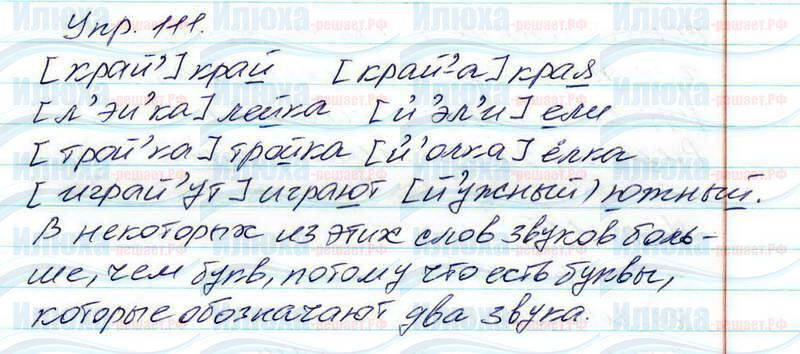 Упр. 111.
[край'] край [край'-а] края
[л'эй'ка] лейка [й'эл'и] ели
[трой'ка] тройка [й'олка] ёлка
[играй'ут] играют [й'ужный) южный.
В некоторых из этих слов звуков боль-
ше, чем букв, потому что есть буквы,
которые обозначают два звука.